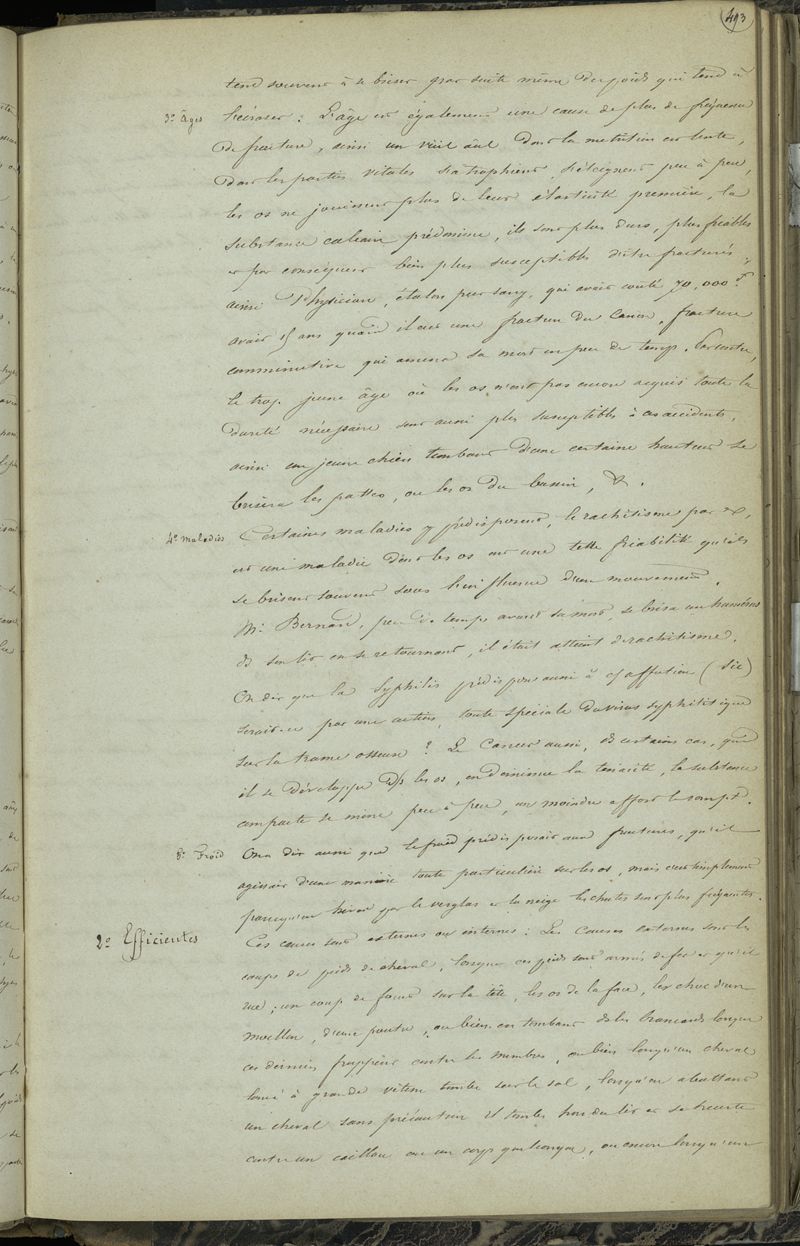 493
tend souvent à se briser par suite même du poids qui tend à
3° Âges l'écraser : L'âge est également une cause de plus de fréquence
de fracture, ainsi un vieil âne dont la nutrition est lente,
dont les parties vitales s'atrophient, s'éteignent peu à peu,
les os ne jouissent plus de leur élasticité première, la
substance calcaire prédomine, ils sont plus durs, plus friables
et par conséquent bien plus susceptibles d'être fracturés,
ainsi Physician, étalon pur sang, qui avait coûté 70,000 f
avait ans quand il eut une fracture du canon, fracture
comminutive qui amena sa mort en peu de temps. Par contre,
le trop jeune âge où les os n'ont pas encore acquis toute la
dureté nécessaire sont aussi plus susceptibles à ces accidents,
ainsi un jeune chien tombant d'une certaine hauteur se
brisera les pattes, ou les os du bassin, &.
4° Maladies Certaines maladies y prédisposent, le rachitisme par ex,
est une maladie dont les os ont une telle friabilité qu'ils
se brisent souvent sous l'influence d'un mouvement.
Mr. Bernard, peu de temps avant sa mort, se brisa un humérus
ds son lit en se retournant, il était atteint de rachitisme.
On dit que la Syphilis prédispose aussi à cj affection (sic)
serait-ce par une action toute spéciale du virus syphilitique
sur la trame osseuse ? Le Cancer aussi, ds certains cas, qd
il se développe ds les os, en diminue la ténacité, la substance
compacte se mine peu à peu, un moindre effort le rompt.
5° Froid On a dit aussi que le froid prédisposait aux fractures, qu'il
agissait d'une manière toute particulière sur les os, mais c'est simplement
parcequ'en hiver par le verglas et la neige les chutes sont plus fréquentes.
2° Efficientes Ces causes sont externes ou internes : Les causes externes sont les
coups de pieds de cheval, lorsque ces pieds sont armés de fer et qu'il
rue ; un coup de sur la tête, les os de la face, le choc d'un
moellon, d'une poutre, ou bien en tombant ds les brancards lorsque
ces derniers frappent contre les membres, ou bien lorsqu'un cheval
lancé à grande vitesse tombe sur le sol, lorsqu'en abattant
un cheval sans précaution il tombe hors du lit et se heurte
contre un caillou ou un corps quelconque, ou encore lorsqu'une